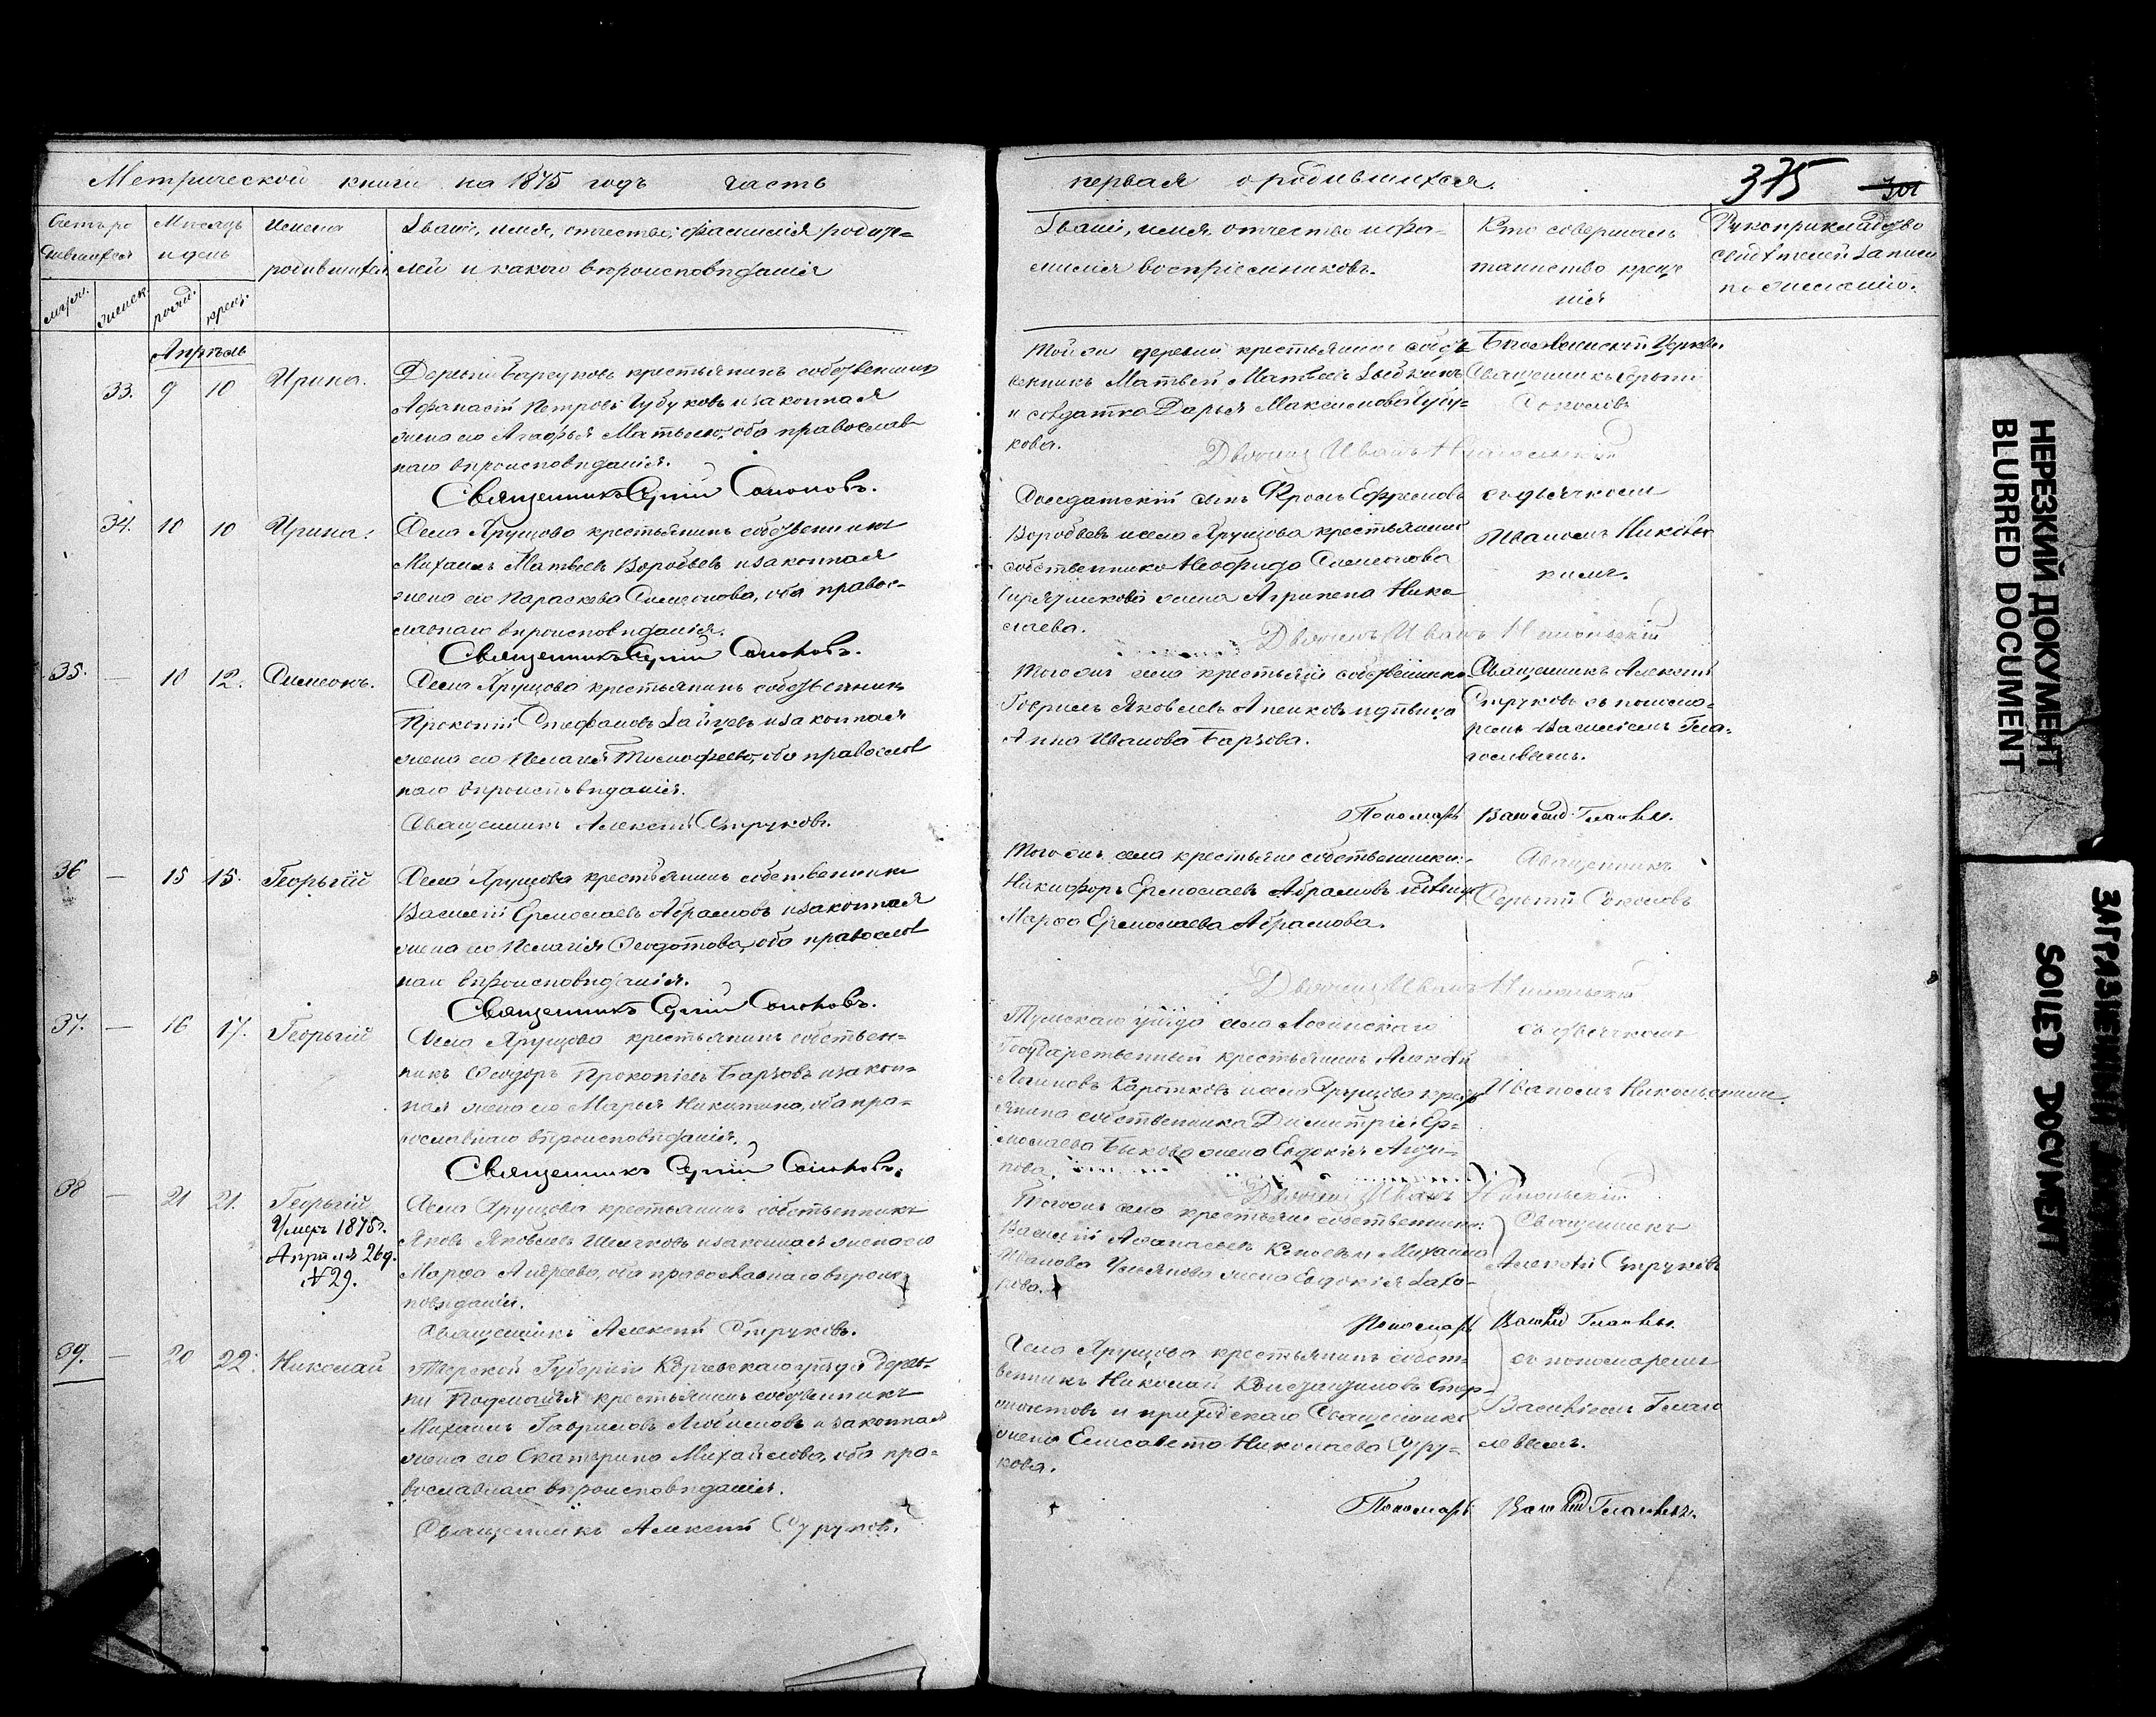 Метрической книги на 1875 годъ часть
первая о родившихся.
375
301
Счетъ ро
дившихся
Мѣсяцъ
и день
Имена
родившихся
Званіе, имя, отчество, фамилія родите=
лей и какого вѣроисповѣданія
муж.
женск.
рожд.
крещ.
Званіе, имя, отчество и фа=
милія воспріемниковъ.
Кто совершалъ
таинство креще
нія
Рукоприкладство
свидѣтелей записи
по желанію.
Апрѣль
33. 9 10 Ирина.
крестьянинъ собственникъ
Афанасій Петровъ Губуковъ и законная
жена его Агафья Матвѣева, оба православ
наго вѣроисповѣданія.
Священникъ Сергій Соколовъ.
Той же деревни крестьянинъ собст
венникъ Матвей Матвѣевъ
и солдатка Дарья Максимова Губу=
кова.
Священникъ Сергій
Соколовъ
Дьячекъ Иванъ Никольскій
34. 10 10 Ирина.
Села Ярунцова крестьянинъ собственникъ
Михаилъ Матвѣевъ Воробьевъ и законная
жена его Параскева Симеонова, оба правос=
лавнаго вѣроисповѣданія.
Священникъ Сергій Соколовъ.
Солдатскій сынъ Ефремовъ
Воробьевъ и села Ярунцова крестьянина
собственника Симеонова
жена Агрипена Нико
лаева.
съ дьячкомъ
Иваномъ Николь
кимъ.
Дьячекъ Иванъ Никольскій
35. — 10 12. Симеонъ.
Села Ярунцова крестьянинъ собственникъ
Прокопій Стефановъ Зайцевъ и законная
жена его Пелагея Тимофеева, оба православ
наго вѣроисповѣданія.
Священникъ Алексѣй Струковъ.
Того жъ села крестьянинъ собственникъ
Гавріилъ Яковлевъ и дѣвица
Анна Иванова Барзова.
Священникъ Алексѣй
Струковъ съ понома=
ремъ Василіемъ Гла=
голевымъ.
Пономарь Василій Глаголевъ.
36 — 15 15. Георьгій
Села Ярунцова крестьянинъ собственникъ
Василій Ермолаевъ Абрамовъ и законная
жена его Пелагія Ѳеодотова, оба православ
наго вѣроисповѣданія.
Священникъ Сергій Соколовъ.
Того жъ села крестьяне собственники:
Никифоръ Ермолаевъ Абрамовъ и дѣвица
Марфа Ермолаева Абрамова.
Священникъ
Сергій Соколовъ
Дьячекъ Иванъ Никольскій
37. — 16 17. Георьгій
Села Ярунцова крестьянинъ собствен=
никъ Ѳеодоръ Прокопіевъ Барзовъ и закон=
ная жена его Марья Никитина, оба пра=
вославнаго вѣроисповѣданія.
Священникъ Сергій Соколовъ.
уѣзда села
Государственный крестьянинъ Алексѣй
Логиновъ Коротковъ и села Ярунцова крест
янина собственника Димитрія Ер=
молаева Быкова жена Евдокія
съ дьячкомъ
Иваномъ Никольскимъ.
Дьячекъ Иванъ Никольскій
38 — 21 21. Георьгій
Умеръ 1875 г.
Апрѣля 26 д.
№ 29.
Села Ярунцова крестьянинъ собственникъ
Яковъ Яковлевъ и законная жена его
Марфа Андреева, оба православнаго вѣроис
повѣданія.
Священникъ Алексѣй Струковъ.
Того жъ села крестьяне собственники:
Василій и Михаила
Иванова Ульянова жена Евдокія Заха=
рова.
Священникъ
Алексѣй Струковъ
Пономарь Василій Глаголевъ.
39. — 20 22. Николай
Тверской Губерніи Корчевскаго уѣзда дерев=
ни крестьянинъ собственникъ
Михаилъ Гавриловъ Любимовъ и законная
жена его Екатерина Михайлова, оба пра=
вославнаго вѣроисповѣданія.
Священникъ Алексѣй Струковъ.
Села Ярунцова крестьянинъ собст=
венникъ Николай Константиновъ
и приходскаго Священника
жена Елисавета Николаева Стру=
кова.
съ пономаремъ
Василіемъ Глаго
левымъ.
Пономарь Василій Глаголевъ.
НЕРЕЗКИЙ ДОКУМЕНТ
BLURRED DOCUMENT
SOILED DOCUMENT